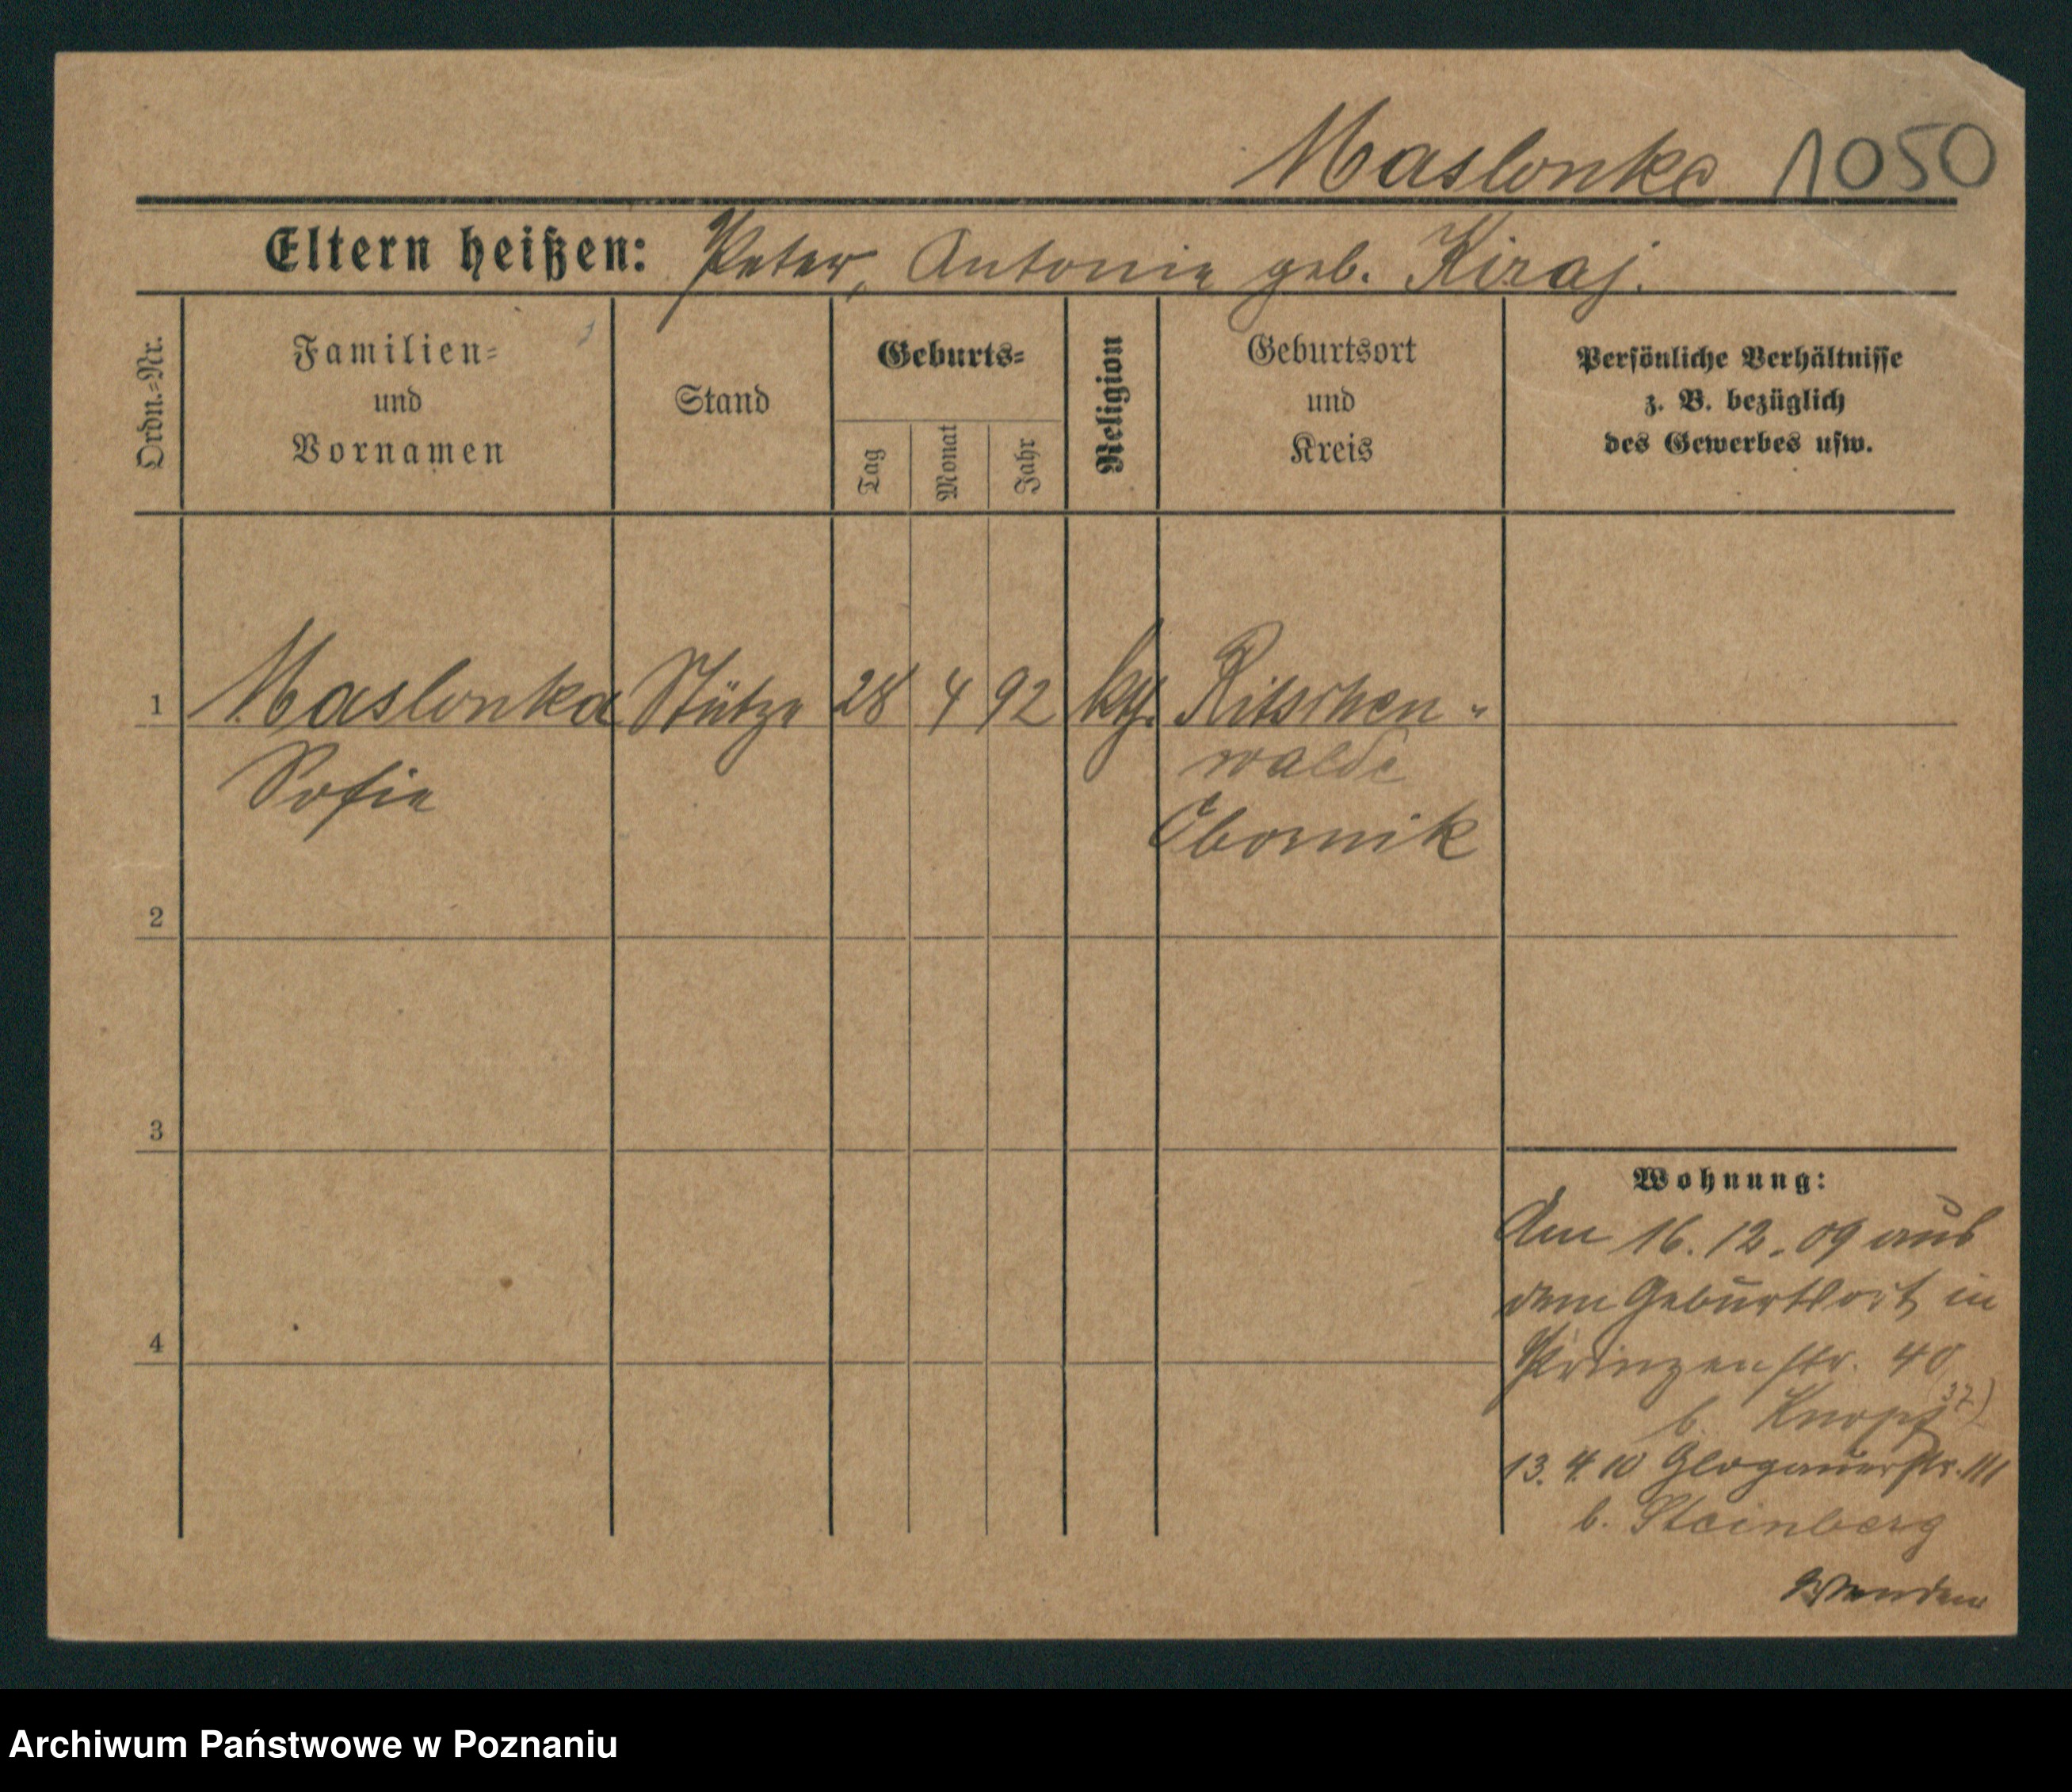 Maslonka 1050
Eltern heißen: Peter, Antonie geb. Kiraj.
Ordn.=Nr.
Familien=
und
Vornamen
Stand
Geburts=
Tag
Monat
Jahr
Religion
Geburtsort
und
Kreis
Persönliche Verhältnisse
z. B. bezüglich
des Gewerbes usw.
1 Maslonka Stütze 28 4 92 kth. Ritschen-
Sofie walde
Obornik
2
3
4
Wohnung:
Am 16. 12. 09 aus
dem Geburtsort in
Prinzenstr. 40
b. Knopf
13. 4. 10 Glogauerstr. 111
b. Steinberg
Wenden
Archiwum Państwowe w Poznaniu